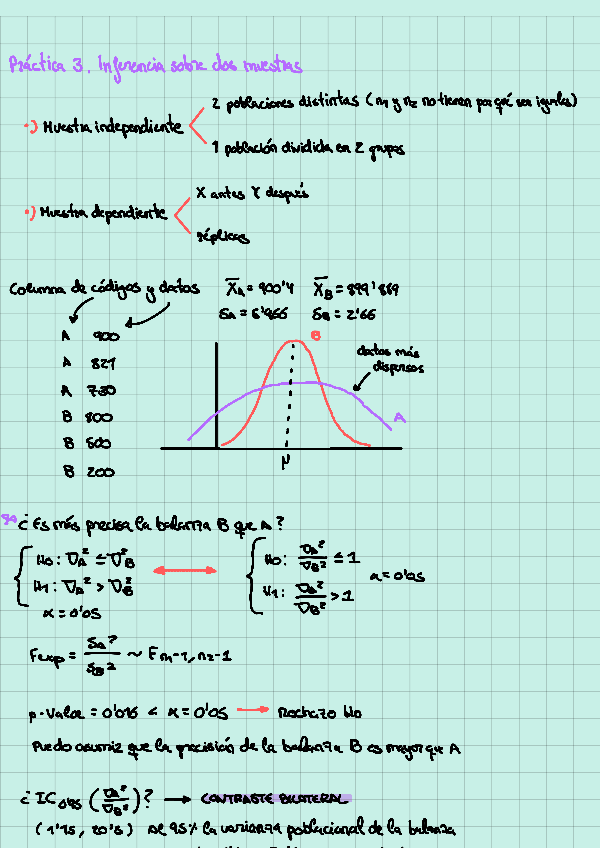 Práctica 3. Inferencia sobre dos muestras
2 poblaciones distintas (n1 y n2 no tienen por qué ser iguales)
·) Muestra independiente
1 población dividida en 2 grupos
X antes Y después
·) Muestra dependiente
réplicas
Columna de códigos y datos
X̄A = 900'4 X̄B = 899'889
SA = 5'966 SB = 2'66
A 900
A 821
A 730
B 800
B 500
B 200
B
datos más
dispersos
A
μ
¿Es más precisa la balanza B que A?
H0: σA² ≤ σB²
H1: σA² > σB²
α = 0'05
H0: σA²/σB² ≤ 1
H1: σA²/σB² > 1
α = 0'05
Fexp = SA²/SB² ~ Fn1-1, n2-1
p-Valor = 0'016 < α = 0'05 → Rechazo H0
Puedo asumir que la precisión de la balanza B es mayor que A
¿IC0'95 (σA²/σB²)? → CONTRASTE BILATERAL
(1'15, 20'5) Al 95% la varianza poblacional de la balanza